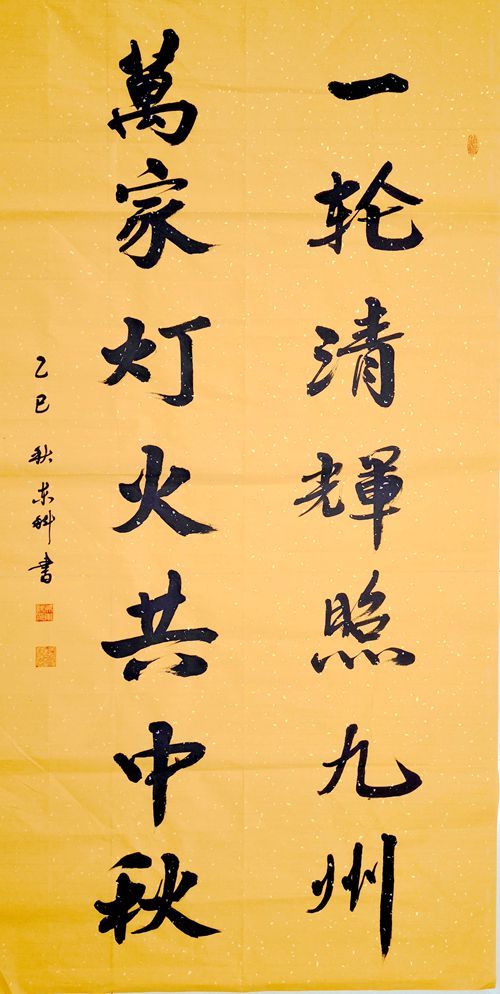 一轮清輝照九州
萬家灯火共中秋
乙巳秋东科書